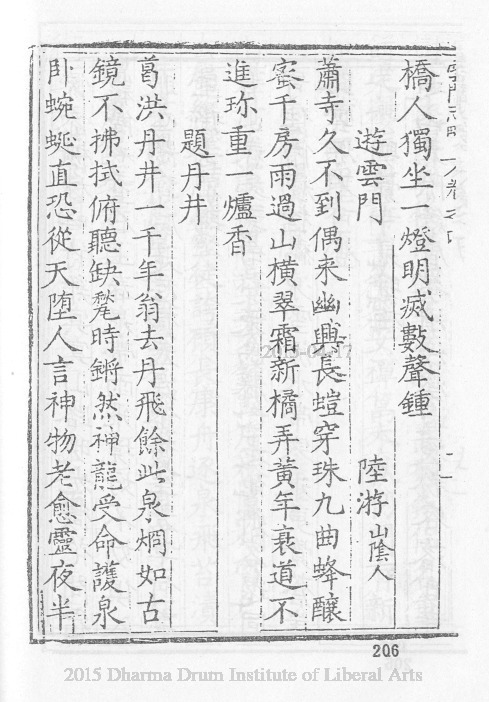 橋人獨坐一燈明滅數聲鍾
遊雲門
陸游山陰人
蕭寺久不到偶来幽興長螘穿珠九曲蜂釀
蜜千房雨過山橫翠霜新橘弄黃年衰道不
進珎重一爐香
題丹井
葛洪丹井一千年翁去丹飛餘此泉炯如古
鏡不拂拭俯聽缺甃時鏘然神龍受命護泉
卧蜿蜒直恐從天墮人言神物老愈靈夜半
206
2015 Dharma Drum Institute of Liberal Arts